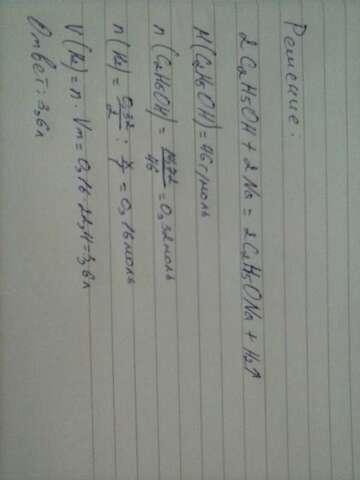 Решение:
2 C2H5OH + 2 Na = 2 C2H5ONa + H2↑
M(C2H5OH) = 46 г/моль
n(C2H5OH) = /46 = 0,32 моль
n(H2) = 0,32/2 : = 0,16 моль
V(H2) = n · Vm = 0,16 · 22,4 = 3,6 л
Ответ: 3,6 л